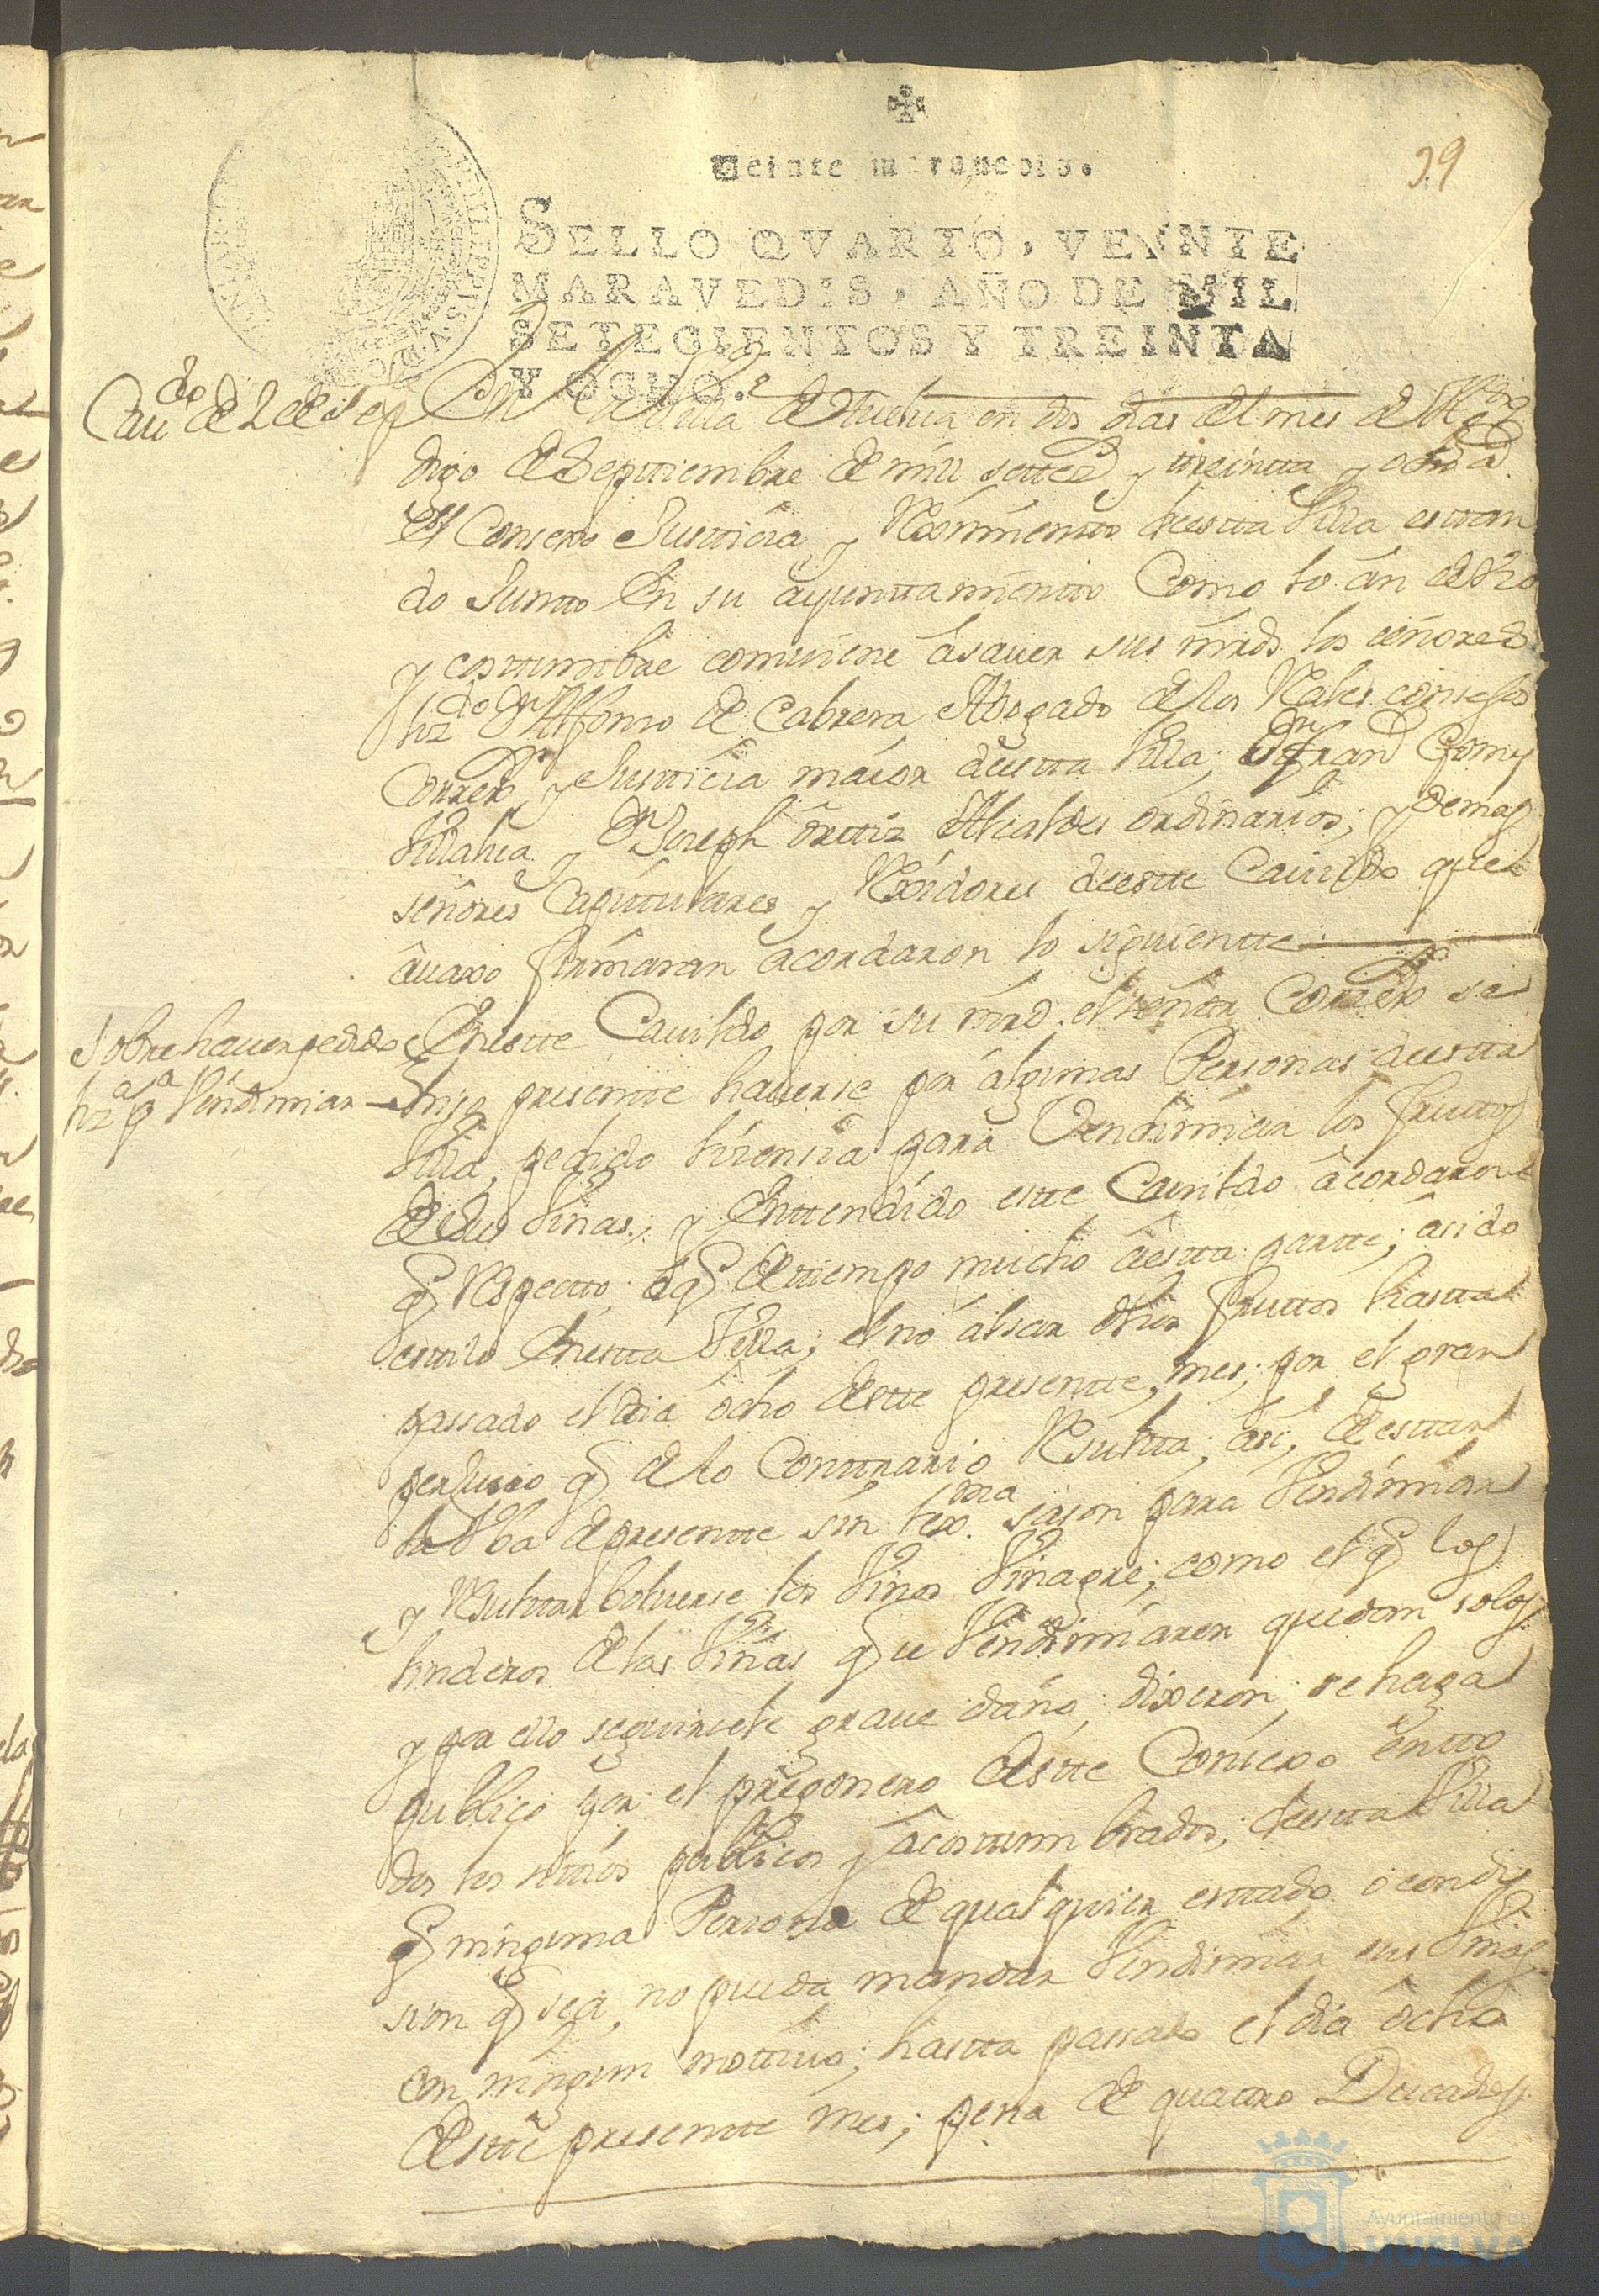 39
Veinte maravedis.
SELLO QVARTO, VEYNTE
MARAVEDIS, AÑO DE MIL
SETECIENTOS Y TREINTA
Y OCHO.
Cau.do de 2 de sep
En la Villa de Huelva en dos dias del mes de
digo de Septtiembre de mill settez.s y treintta y ocho a.s
el Consexo Justticia y Reximientto deestta Villa esttan
do Juntto En su ayunttamientto Como lo an de Vzo
y costtumbre combiene âsauer sus mrds. los señores
liz.do Dn Alfonso de Cabrera Abogado de los Rales. consejos
Correxr. y Justticia maior deestta Villa, Dn Fran.co Gomz
Villalua y Dn Joseph ôrttiz Alcaldes ordinarios; y demas
señores Capitulares y Rexidores deestte Cauildo que
âuaxo firmaran acordaron lo siguientte
Sobre hauer pedido
liz.a p.a Vendimiar
Enestte Cauildo por su mrd. el señor Correxr. se
hizo presentte hauerse por algunas Personas deestta
Villa, pedido lizencia para Vendimiar los fruttos
de sus Viñas; y Enttendido estte Cauildo âcordaron
q Respectto, aq. de ttiempo mucho âestta partte; âsido
esttilo Enestta Villa; el no alsar dhos fruttos hastta
passado el dia ocho destte presentte, mes; por el gran
perjuisio q de lo Conttrario Resultta; asi, de esttar
la Vba depresentte sin lexma. sason para Vendimiar
y Resulttar boluerse los Vinos Vinagre; como el q los
linderos de las Viñas q se Vendimiaren quedan solos
y por ello seguirsele graue daño, dixeron, se haga
publico por el pregonero destte Consexo entto
dos los sittios publicos y âcosttumbrados, deestta Villa
q ninguna Persona de qualquier esttado o condi
sion q sea, no pueda mandar Vendimiar sus Viñas
con ningun mottiuo; hastta passado el dia ôcho
destte presentte mes; pena de quattro Ducados
Ayuntamiento de
HUELVA